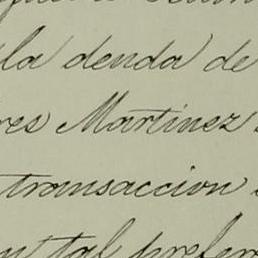 la deuda de
res Martinez
transaccion
tal prefer